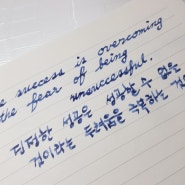 e success is overcoming
the fear of being
unsuccessful.
진정한 성공은 성공할 수 없은
것이라는 두려움을 극복하는 것